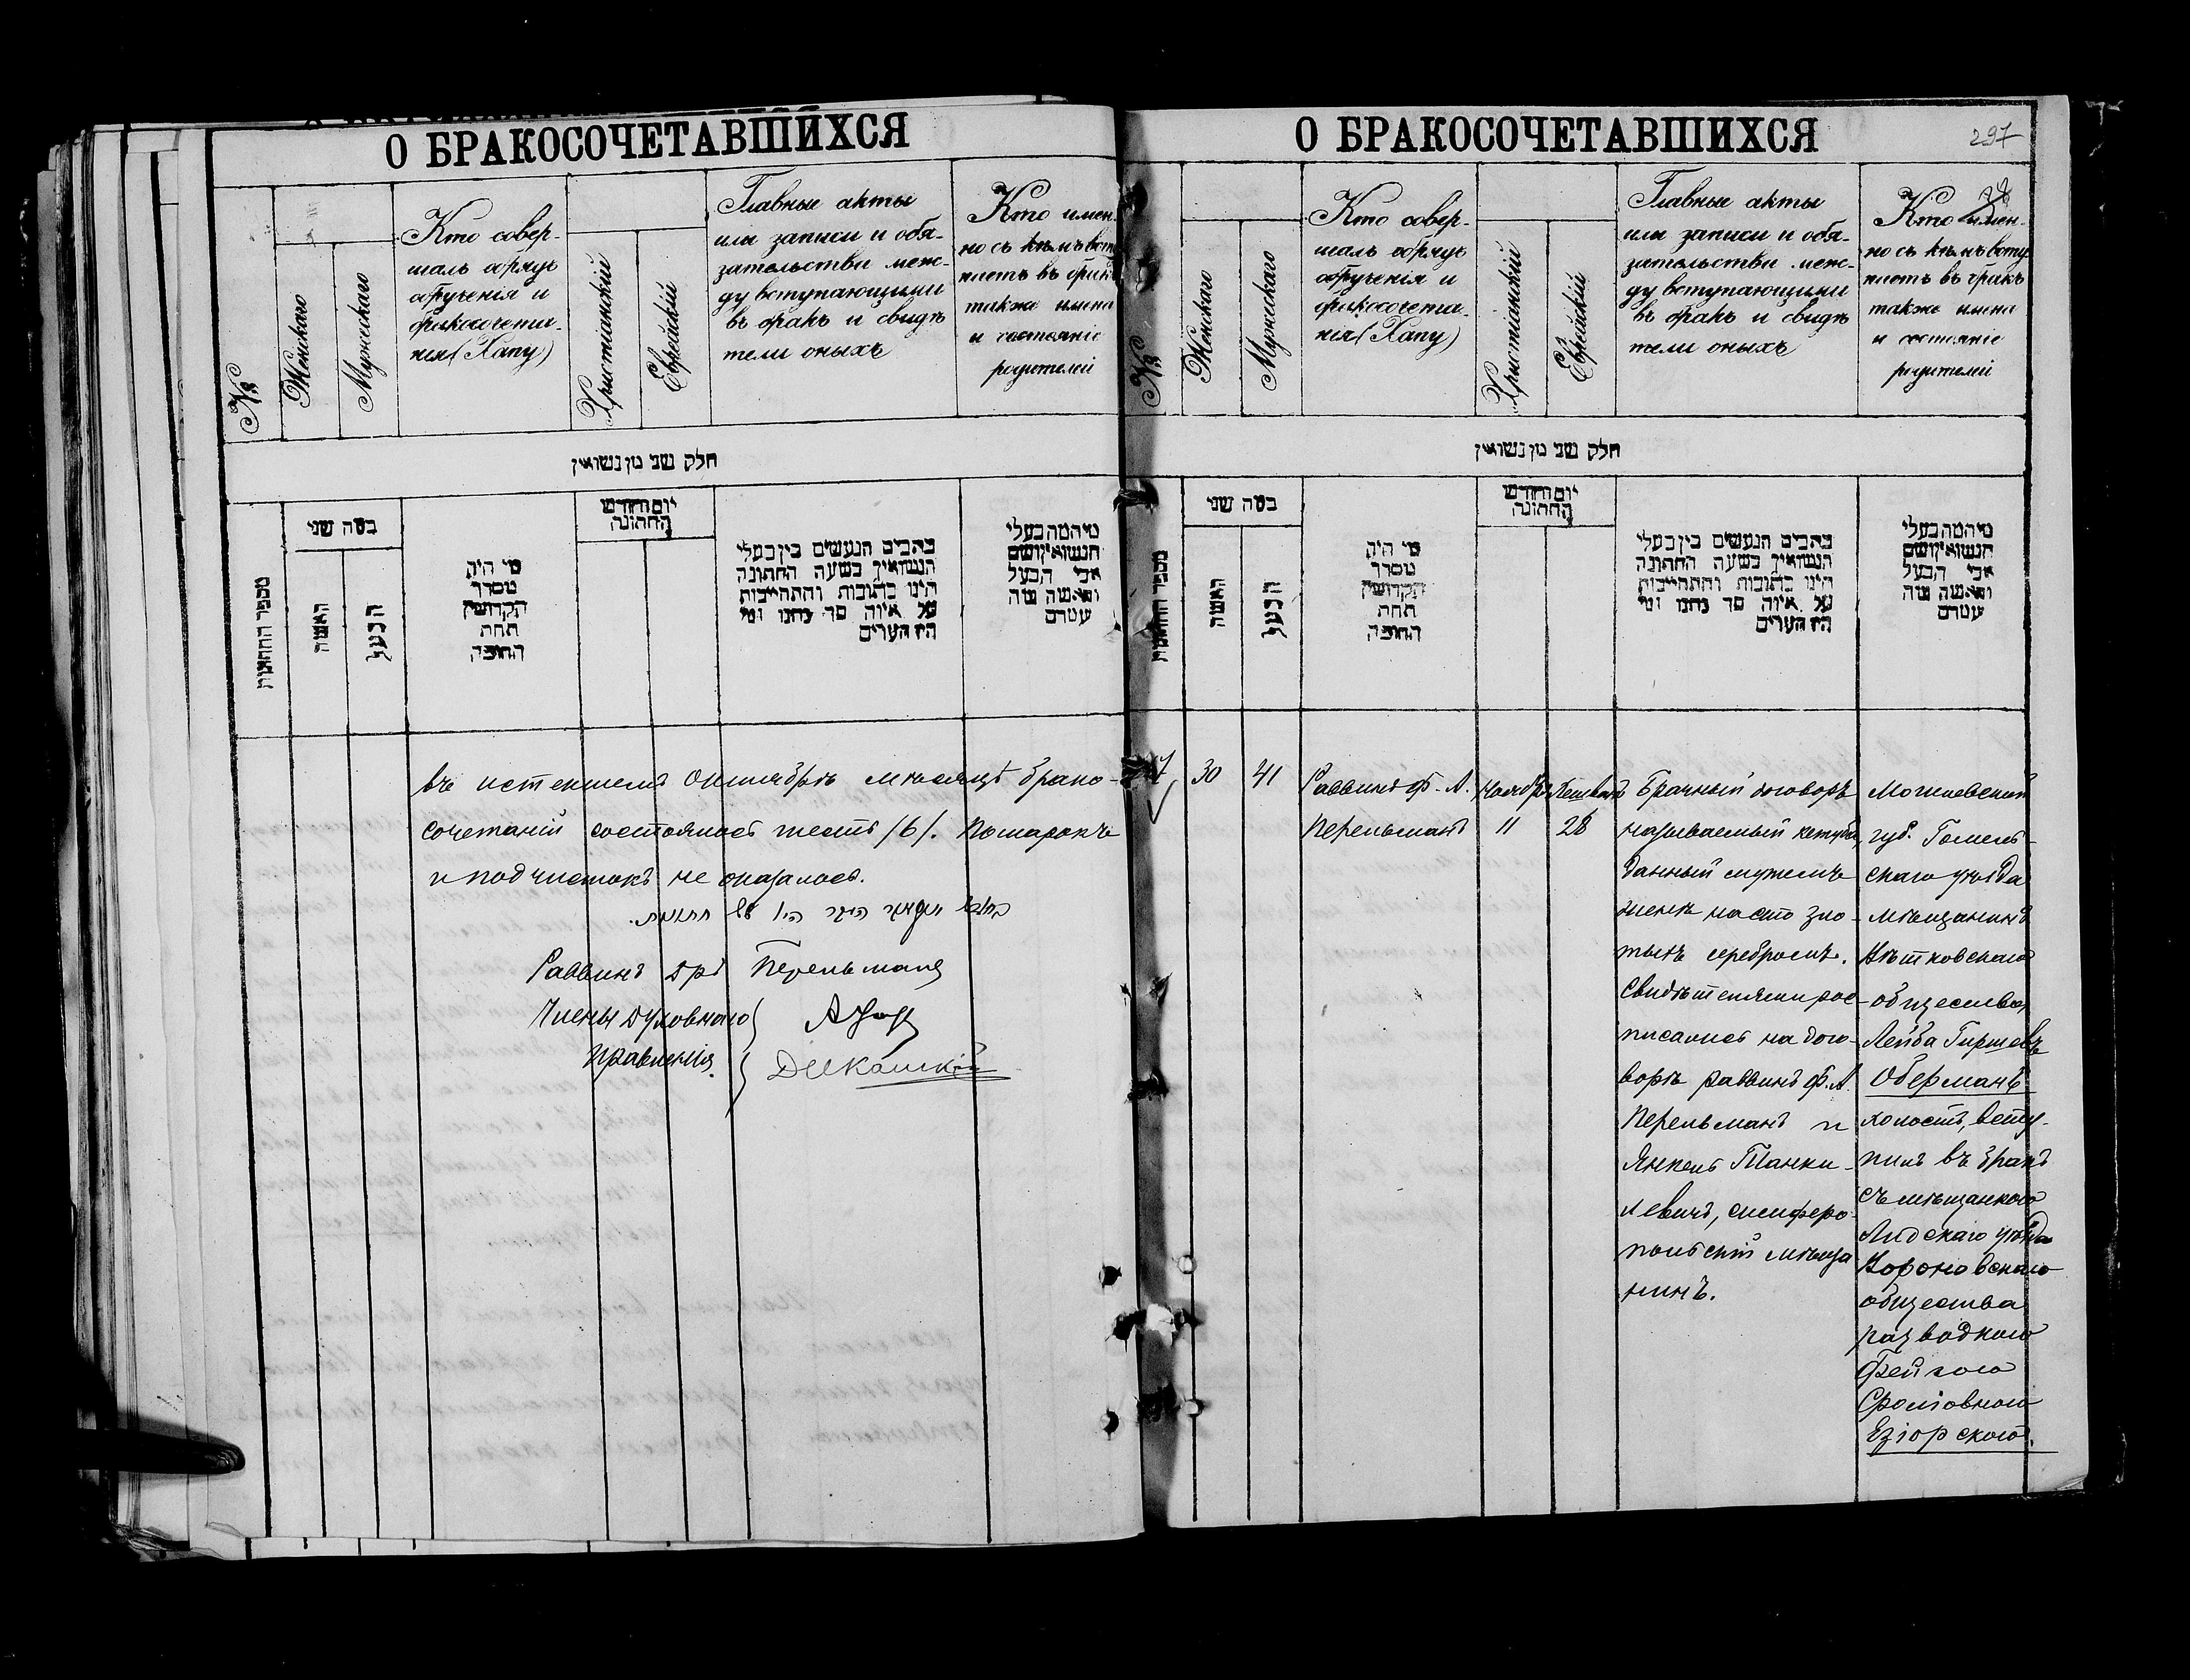 О БРАКОСОЧЕТАВШИХСЯ
№
Женскаго
Мужескаго
Кто совер-
шалъ обрядъ
обрученія и
бракосочета-
нія (Хапу)
Христіанскій
Еврейскій
Главные акты
или записи и обя-
зательства меж-
ду вступающими
въ бракъ и свидѣ
тели оныхъ
Кто имен-
но съ кѣмъ всту
паетъ въ бракъ
также имена
и состояніе
родителей
חלק שני מן נשואין
מספר החתונות
כמה שני
האשה
הבעל
מי היה
מסדר
הקדושין
תחת
החופה
יום וחודש
החתונה
כתבים הנעשים בין בעלי
הנשואין בשעה החתונה
היינו כתובות והתחייבות
על איזה סך נתנו ומי
היו העדים
מי המה בעלי
הנשואין ושם
אבי הבעל
והאשה מה
מעמדם
въ истекшемъ Октябрѣ мѣсяцѣ брако-
сочетаній состоялось шесть /6/. Помарокъ
и подчистокъ не оказалось.
Раввинъ Дръ Перельманъ
Члены Духовнаго
Правленія.
О БРАКОСОЧЕТАВШИХСЯ
297
№
Женскаго
Мужескаго
Кто совер-
шалъ обрядъ
обрученія и
бракосочета-
нія (Хапу)
Христіанскій
Еврейскій
Главные акты
или записи и обя-
зательства меж-
ду вступающими
въ бракъ и свидѣ
тели оныхъ
Кто имен-
но съ кѣмъ всту
паетъ въ бракъ
также имена
и состояніе
родителей
חלק שני מן נשואין
מספר החתונות
כמה שני
האשה
הבעל
מי היה
מסדר
הקדושין
תחת
החופה
יום וחודש
החתונה
כתבים הנעשים בין בעלי
הנשואין בשעה החתונה
היינו כתובות והתחייבות
על איזה סך נתנו ומי
היו העדים
מי המה בעלי
הנשואין ושם
אבי הבעל
והאשה מה
מעמדם
30
41
Раввинъ Ф. А.
Перельманъ
Ноябрь
11
Хешванъ
28
Брачный договоръ
называемый кетуба,
данный мужемъ
женѣ на сто зло-
тыхъ серебромъ.
Свидѣтелями рос-
писались на дого-
ворѣ раввинъ Ф. А.
Перельманъ и
Янкель Танхи-
левичъ, симферо-
польскій мѣща
нинъ.
Могилевской
губ. Гомель-
скаго уѣзда
мѣщанинъ
Вѣтковскаго
общества
Лейба Гиршевъ
Оберманъ
холостъ, всту-
пилъ въ бракъ
съ мѣщанкою
Лидскаго уѣзда
Вороновскаго
общества
разводкою
Фейгою
Сроліовною
Езіорскою.